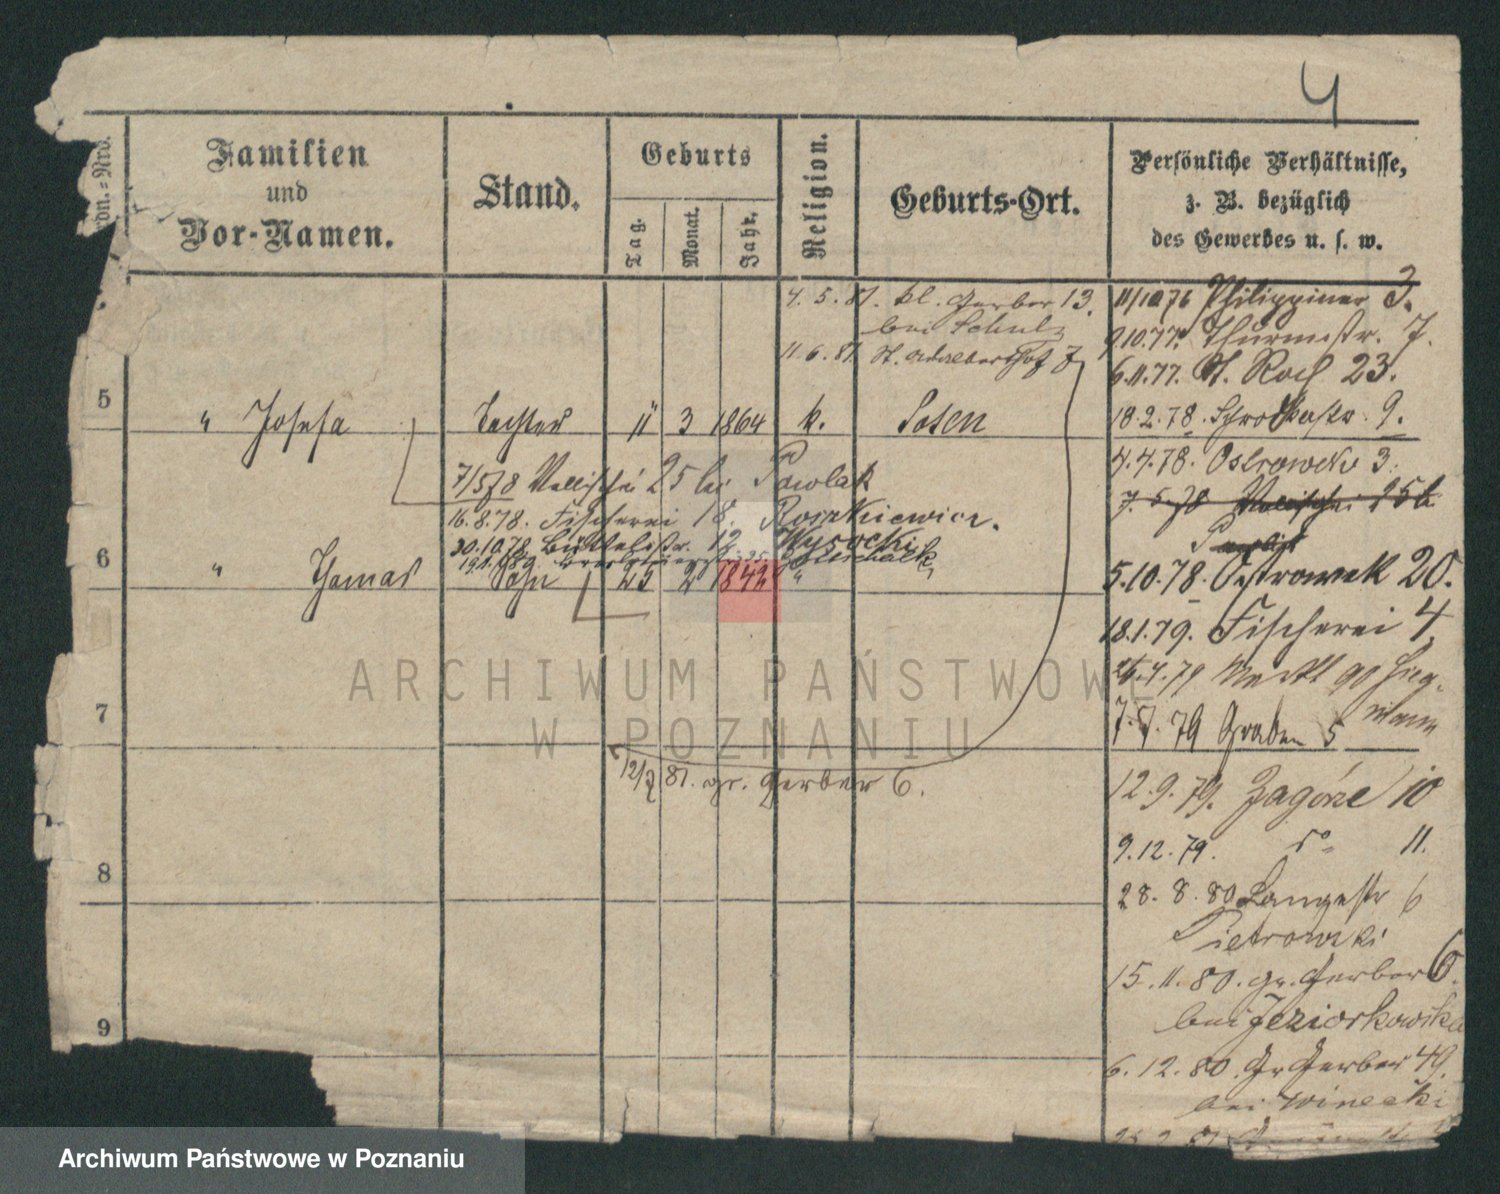 4
dn.-Nro.
Familien
und
Vor-Namen.
Stand.
Geburts
Tag.
Monat.
Jahr.
Religion.
Geburts-Ort.
Persönliche Verhältnisse,
z. B. bezüglich
des Gewerbes u. s. w.
4. 5. 81. kl. Gerber 13.
bei Schulz
11. 6. 81. St. Adalbert
11/10 76 Philippiner 3.
9.10.77. Thurmstr. 7.
6.11.77. St. Roch 23.
5 " Josefa Tochter 11 3 1864 k. Posen
18.2.78. Schrodkastr. 9.
4.4.78. Ostrowek 3.
7/5 78 Wallischei 25 bei Pawlak
7. 5. 78 Wallischei
16.8.78. Fischerei 18.
30.10.78. Büttelstr. 12 Wysocki
6 " Thomas Sohn 25 2 1842 "
5.10.78. Ostrowek 20.
18.1.79. Fischerei 4
4.79
7 7.7.79 Graben 5
12/7 81. gr. Gerber 6.
12.9.79. Zagórze 10
9.12.79. do 11.
8 28. 8. 80. Langestr 6
Pietrowski
15. 11. 80. gr. Gerber 6.
bei Jeziorkowska
9
6. 12. 80. Gr Gerber 49.
bei Winecki
ARCHIWUM PAŃSTWOWE
W POZNANIU
Archiwum Państwowe w Poznaniu